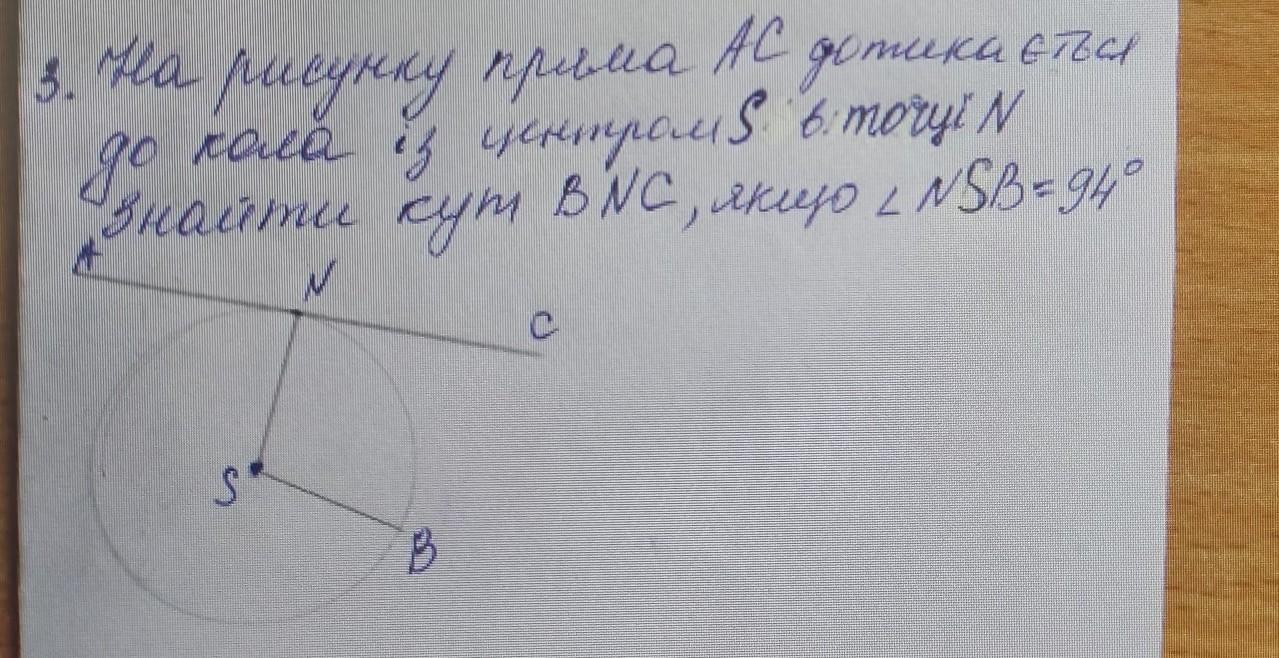 3. На рисунку пряма AC дотикається
до кола із центром S в точці N
Знайти кут BNC, якщо ∠ NSB = 94°
A
N
C
S
B